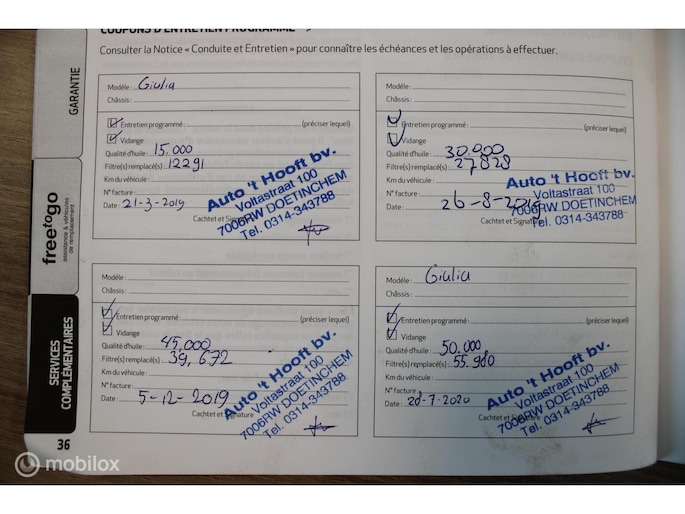 COUPONS D'ENTRETIEN PROGRAMMÉ
Consulter la Notice « Conduite et Entretien » pour connaître les échéances et les opérations à effectuer.
GARANTIE
freetogo
assistance & véhicules
de remplacement
SERVICES
COMPLÉMENTAIRES
36
Modèle : Giulia
Châssis :
Entretien programmé : (préciser lequel)
Vidange
Qualité d'huile : 15.000
Filtre(s) remplacé(s) : 12291
Km du véhicule :
N° facture :
Date : 21-3-2019
Cachet et Signature
Auto 't Hooft bv.
Voltastraat 100
7006RW DOETINCHEM
Tel. 0314-343788
Modèle :
Châssis :
Entretien programmé : (préciser lequel)
Vidange
Qualité d'huile : 30.000
Filtre(s) remplacé(s) : 27828
Km du véhicule :
N° facture :
Date : 26-8-2019
Cachet et Signature
Auto 't Hooft bv.
Voltastraat 100
7006RW DOETINCHEM
Tel. 0314-343788
Modèle :
Châssis :
Entretien programmé : (préciser lequel)
Vidange
Qualité d'huile : 45.000
Filtre(s) remplacé(s) : 39,672
Km du véhicule :
N° facture :
Date : 5-12-2019
Cachet et Signature
Auto 't Hooft bv.
Voltastraat 100
7006RW DOETINCHEM
Tel. 0314-343788
Modèle : Giulia
Châssis :
Entretien programmé : (préciser lequel)
Vidange
Qualité d'huile : 50.000
Filtre(s) remplacé(s) : 55.980
Km du véhicule :
N° facture :
Date : 20-7-2020
Cachet et Signature
Auto 't Hooft bv.
Voltastraat 100
7006RW DOETINCHEM
Tel. 0314-343788
mobilox